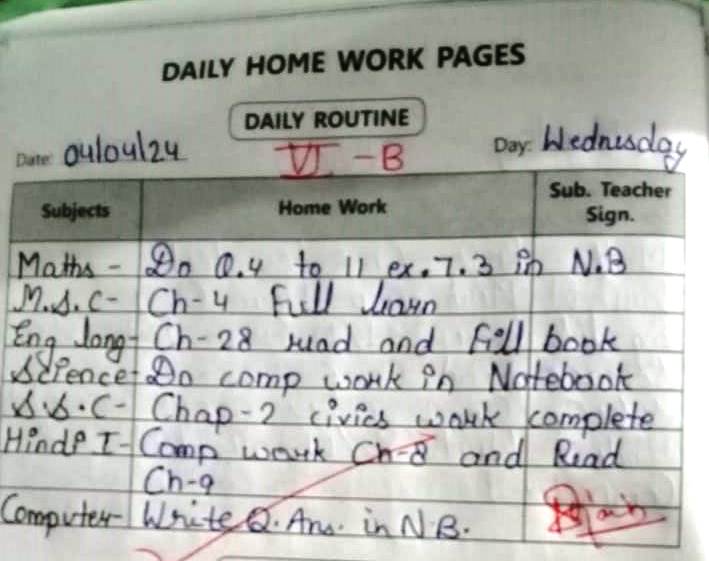 DAILY HOME WORK PAGES
DAILY ROUTINE
Date: 04/04/24 VI - B Day: Wednesday
Subjects Home Work Sub. Teacher Sign.
Maths - Do Q.4 to 11 ex.7.3 in N.B
M.S.C- Ch-4 Full learn
Eng lang- Ch-28 read and Fill book
Science- Do comp work in Notebook
S.S.C- Chap-2 civics work complete
Hindi I- Comp work Ch-8 and Read
Ch-9
Computer- Write Q. Ans. in N.B.